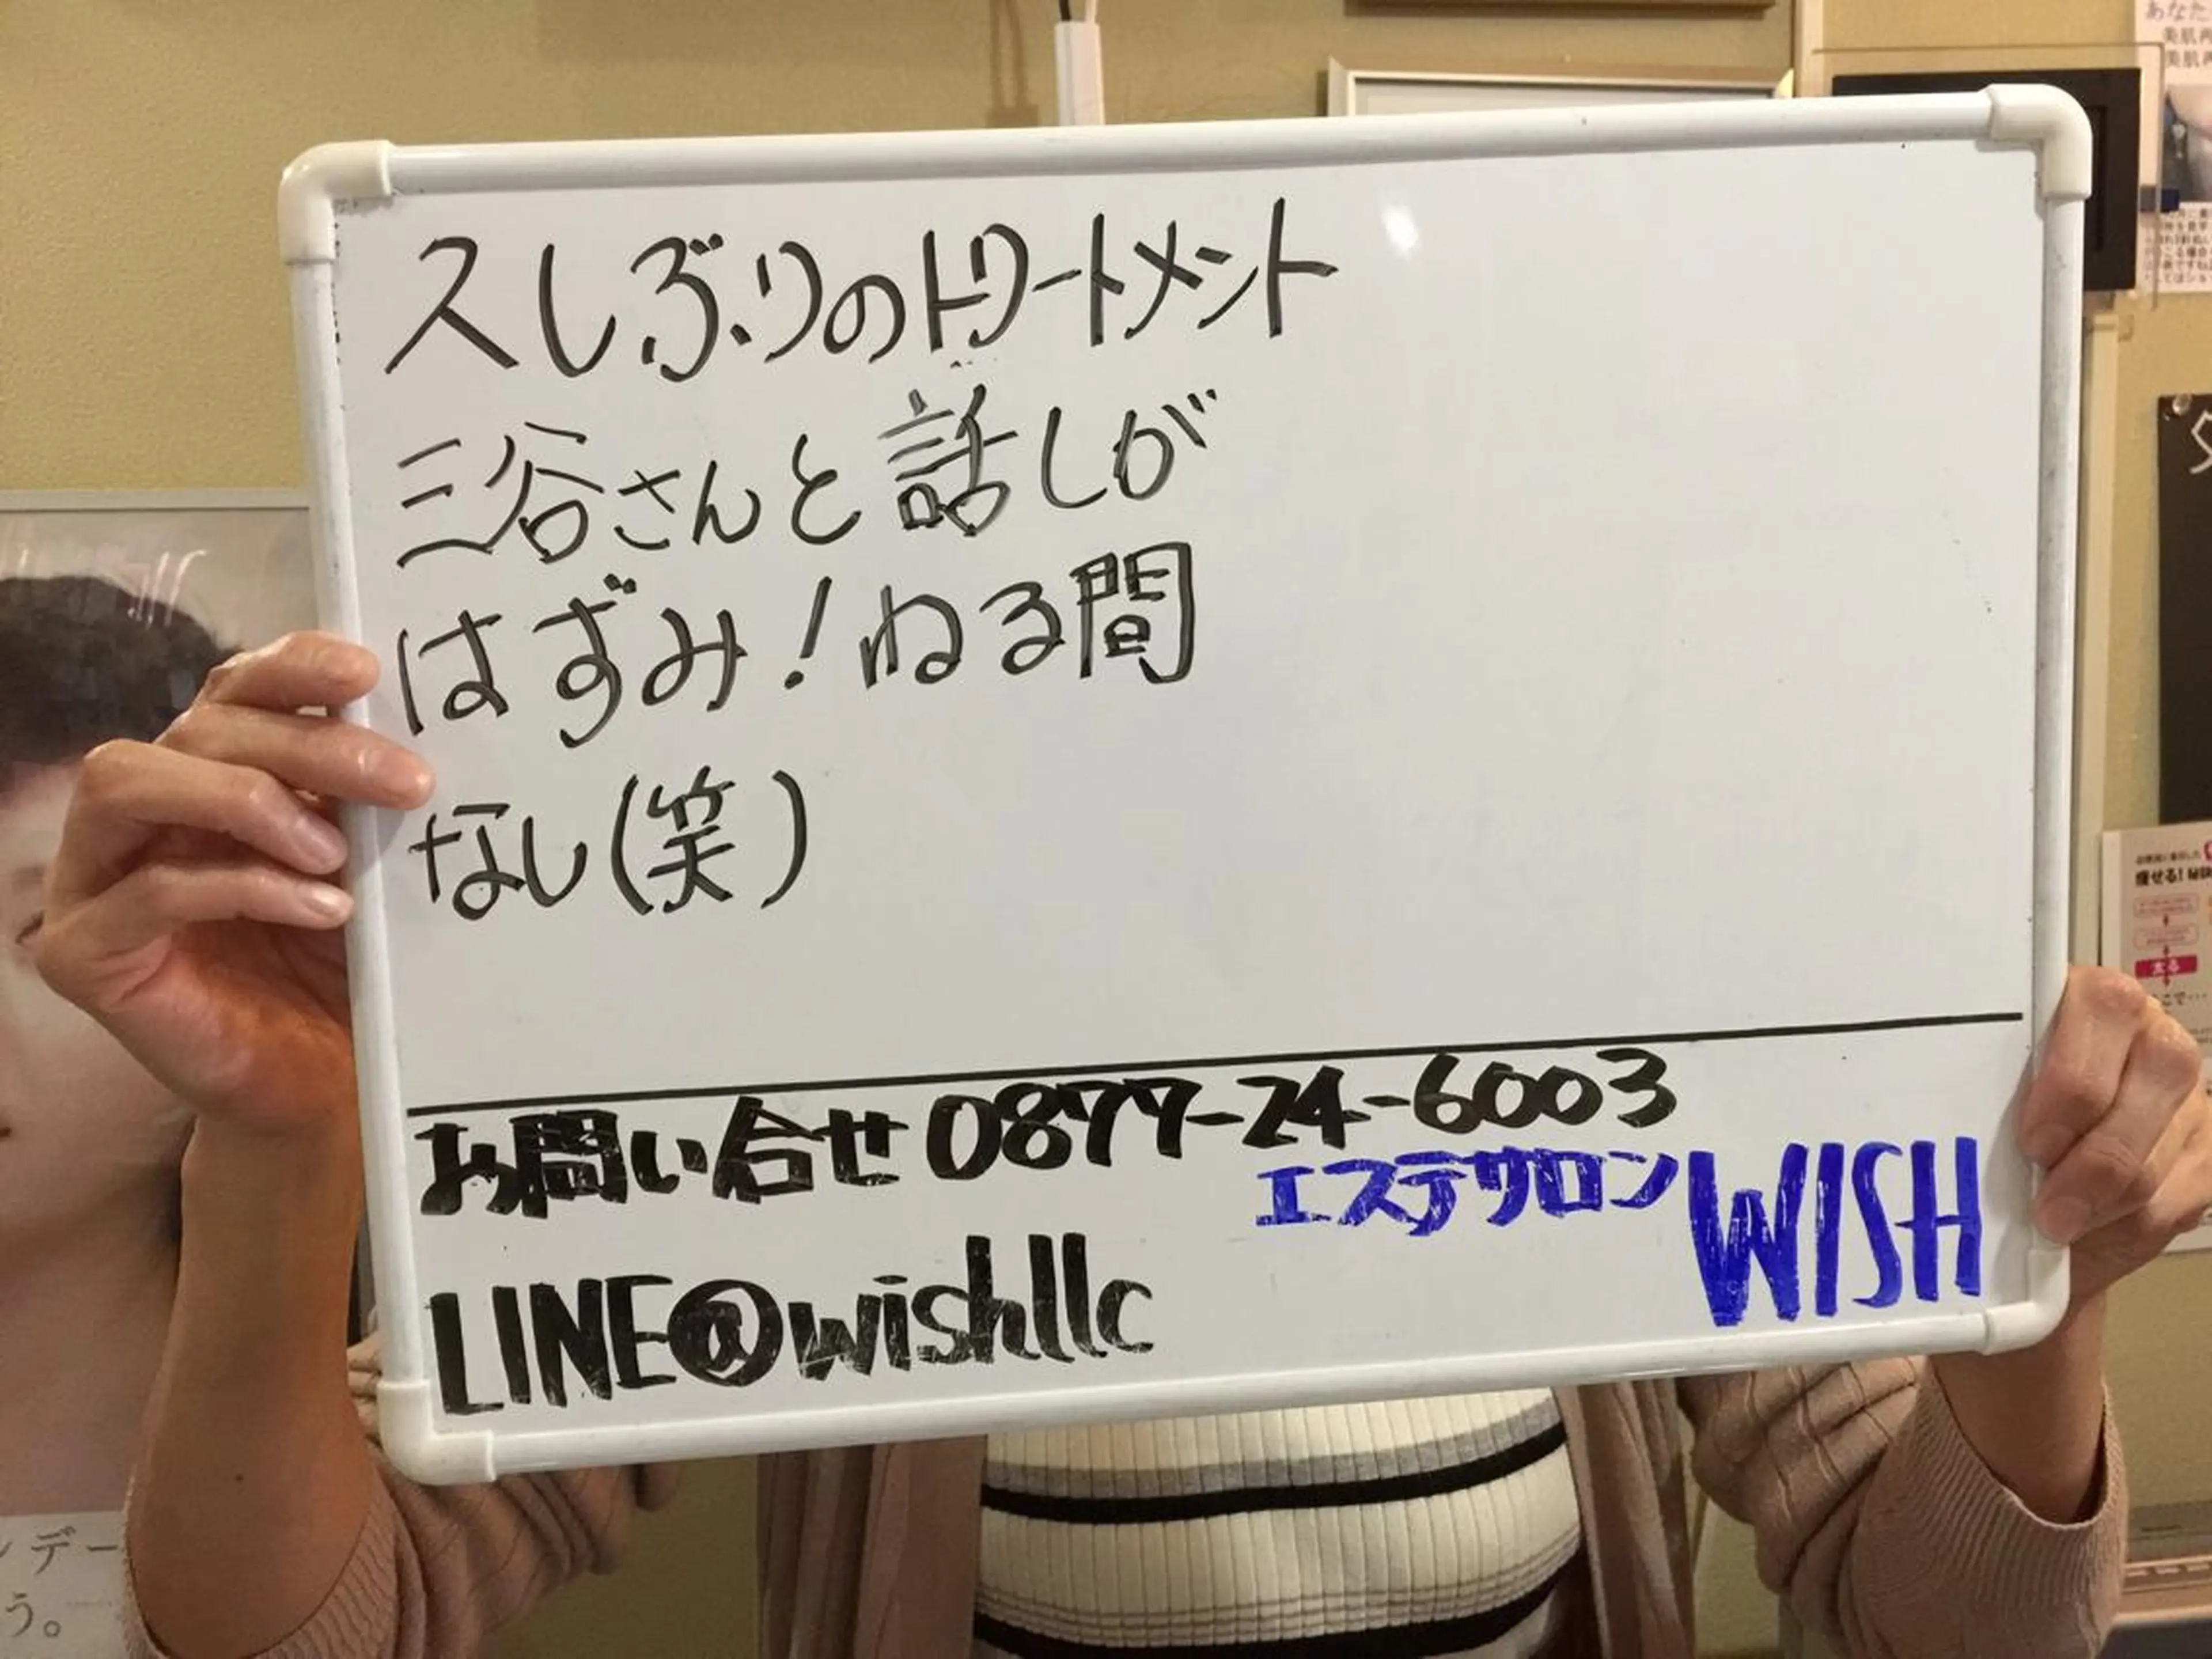 久しぶりのトリートメント
三谷さんと話しが
はずみ!ねる間
なし(笑)
お問い合せ0877-24-6003
エステサロンWISH
LINE@wishllc
あなた
美肌再
美肌再
デー
う。